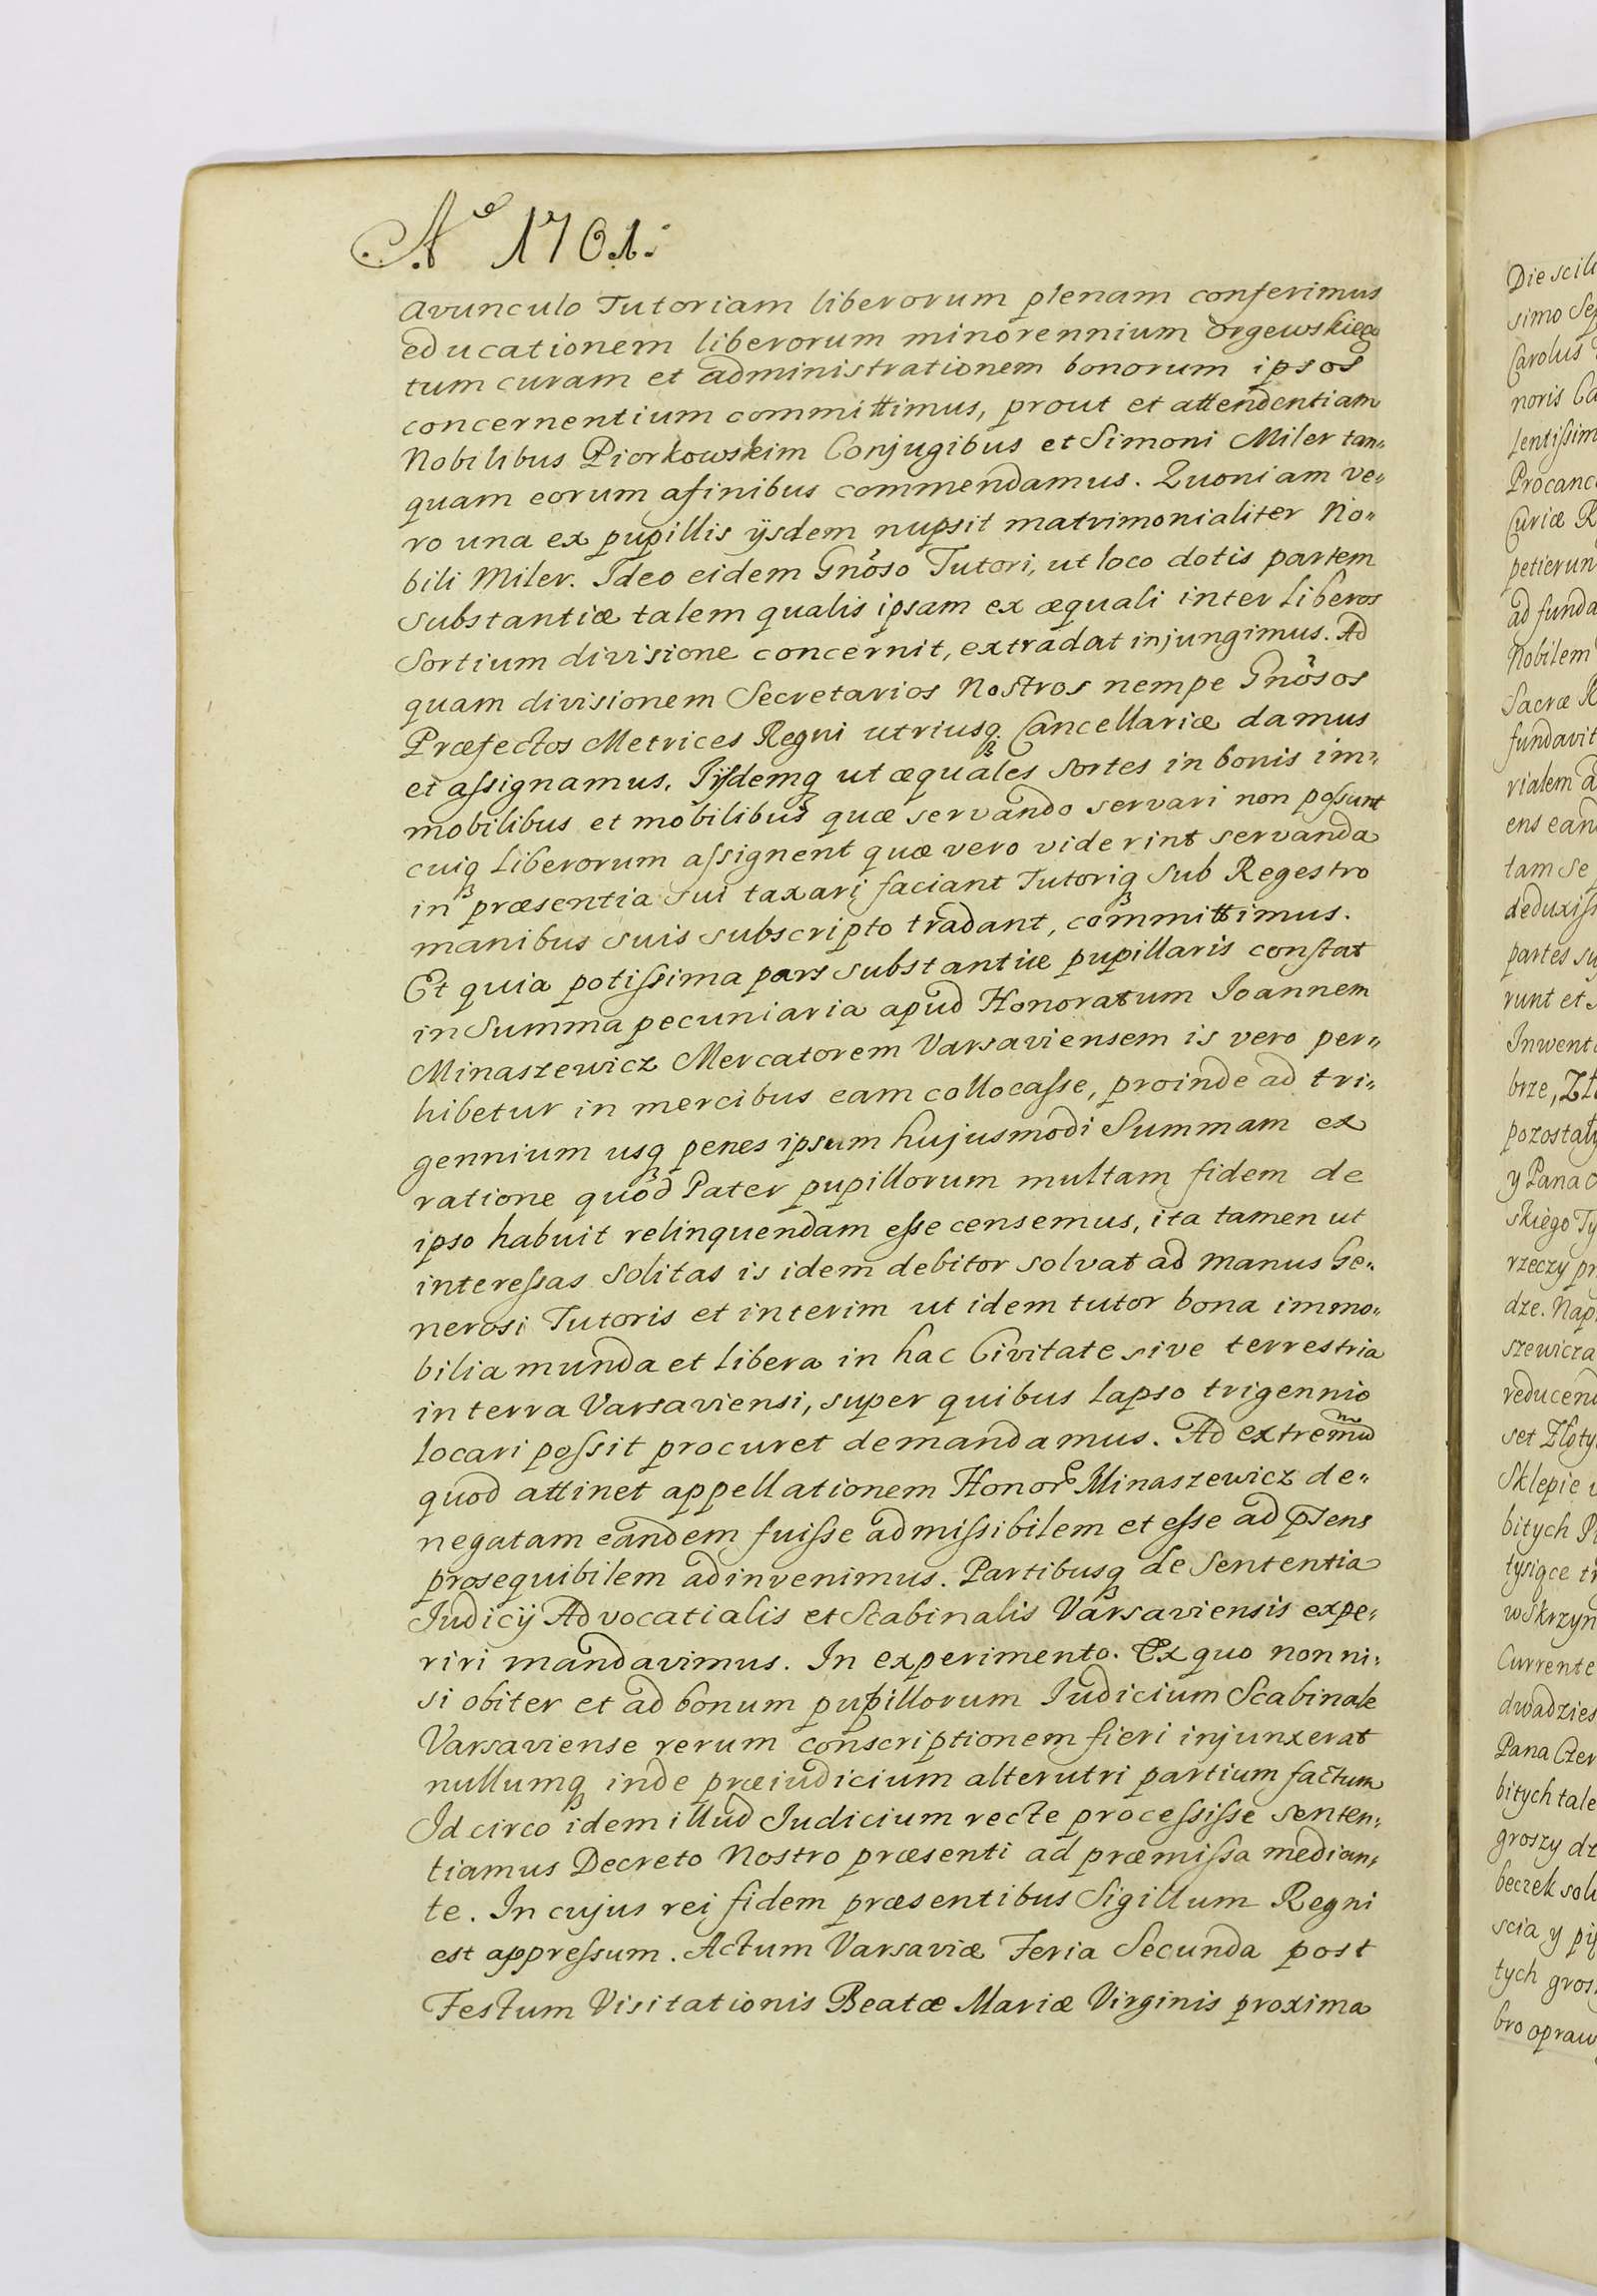 Aº 1701.
avunculo Tutoriam liberorum plenam conferimus
educationem liberorum minorennium Orgewskiego
tum curam et administrationem bonorum ipsos
concernentium committimus, prout et attendentiam
Nobilibus Piorkowskim Conjugibus et Simoni Miler tan„
quam eorum afinibus commendamus. Quoniam ve„
ro una ex pupillis ijsdem nupsit matrimonialiter No„
bili Miler. Ideo eidem Gnõso Tutori, ut loco dotis partem
substantiæ talem qualis ipsam ex æquali inter Liberos
Sortium divisione concernit, extradat injungimus. Ad
quam divisionem Secretarios Nostros nempe Gnõsos
Præfectos Metrices Regni utriusq; Cancellariæ damus
et assignamus. Iijsdemq; ut æquales sortes in bonis im„
mobilibus et mobilibus quæ servando servari non possunt
cuiq; Liberorum assignent quæ vero viderint servanda
in præsentia sui taxari faciant Tutoriq; sub Regestro
manibus suis subscripto tradant, committimus.
Et quia potissima pars substantiæ pupillaris constat
in Summa pecuniaria apud Honoratum Ioannem
Minaszewicz Mercatorem Varsaviensem is vero per„
hibetur in mercibus eam collocasse, proinde ad tri„
gennium usq; penes ipsum hujusmodi Summam ex
ratione quod Pater pupillorum multam fidem de
ipso habuit relinquendam esse censemus, ita tamen ut
interessas solitas is idem debitor solvat ad manus Ge„
nerosi Tutoris et interim ut idem tutor bona immo„
bilia munda et libera in hac Civitate sive terrestria
in terra Varsaviensi, super quibus lapso trigennio
locari possit procuret demandamus. Ad extremũ
quod attinet appellationem Honor. Minaszewicz de„
negatam eandem fuisse admissibilem et esse ad p̃sens
prosequibilem adinvenimus. Partibusq; de Sententia
Iudicij Advocatialis et Scabinalis Varsaviensis expe„
riri mandavimus. In experimento. Ex quo non ni„
si obiter et ad bonum pupillorum Iudicium Scabinale
Varsaviense rerum conscriptionem fieri injunxerat
nullumq; inde præiudicium alterutri partium factum
Id circo idem illud Iudicium recte processisse senten„
tiamus Decreto Nostro præsenti ad præmissa median„
te. In cujus rei fidem præsentibus Sigillum Regni
est appressum. Actum Varsaviæ Feria Secunda post
Festum Visitationis Beatæ Mariæ Virginis proxima
Die scil
simo Sep
Carolus
noris Ca
lentissim
Procanc
Curiæ R
petierun
ad funda
Nobilem
Sacræ R
fundavit
rialem a
ens ean
tam se
deduxiss
partes su
runt et s
Inwent
brze, Zł
pozostał
y Pana
skiego Ty
rzeczy pr
dze. Nap
szewicza
reducend
set Złoty
Sklepie
bitych P
tysiące tr
w Skrzyn
Currente
dwadzies
Pana Czer
bitych tale
groszy dz
beczek soli
scia y pi
tych gros
bro opraw